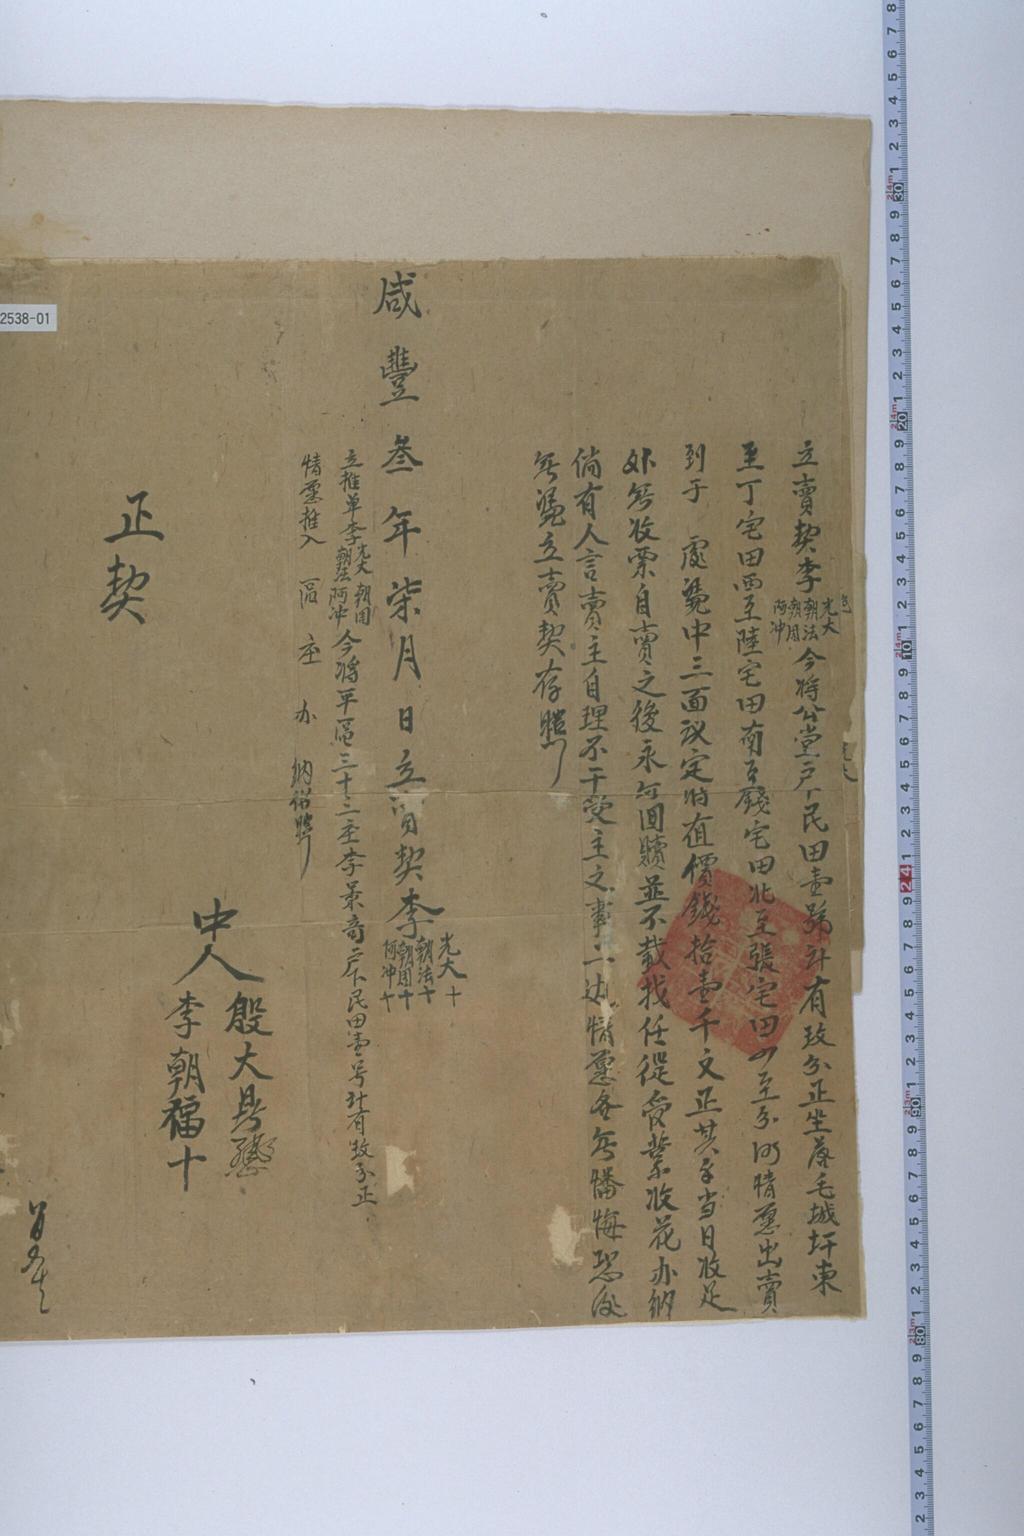 立賣契李光大朝法朝周阿冲今將公堂戶下民田壹號計有玫分正坐落毛城圩東
至丁宅田西至陸宅田南至錢宅田北至張宅田四至分明情愿出賣
到于 處憑中三面議定時值價錢拾壹千文正其手当日收足
外無收票自賣之後永無回贖並不載找任從受業收花办納
倘有人言賣主自理不干受主之事二边情愿各無憣悔恐後
無憑立賣契存照
咸豐叁年柒月 日立賣契李光大十朝法十朝周十阿冲十
立推单李光大朝法朝周阿冲今將平區三十二庄李景奇戶下民田壹号計有玫分正
情愿推入 區 庄 办 納裕照
中人殷大昌
李朝福十
正契
2538-01